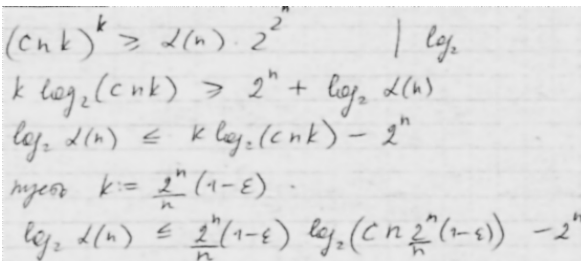 (cnk)^k ≥ α(n) · 2^{2^n} | log₂
k log₂(cnk) ≥ 2^n + log₂ α(n)
log₂ α(n) ≤ k log₂(cnk) − 2^n
пусть k := 2^n/n (1−ε) .
log₂ α(n) ≤ 2^n/n (1−ε) log₂(cn 2^n/n (1−ε)) − 2^n